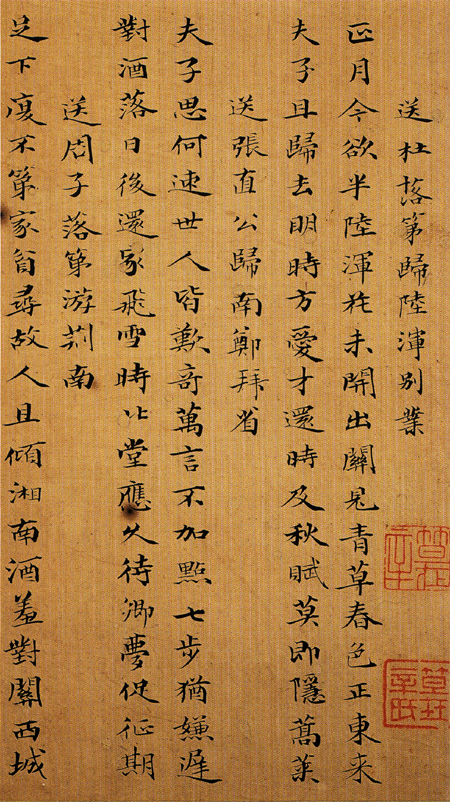 送杜落第歸陸渾別業
正月今欲半陸渾花未開出關見青草春色正東来
夫子且歸去明時方愛才還時及秋賦莫即隱蒿萊
送張直公歸南鄭拜省
夫子思何速世人皆歎奇萬言不加點七步猶嫌遲
對酒落日後還家飛雪時北堂應久待卿夢促征期
送周子落第游荊南
足下復不第家貧尋故人且傾湘南酒羞對關西城